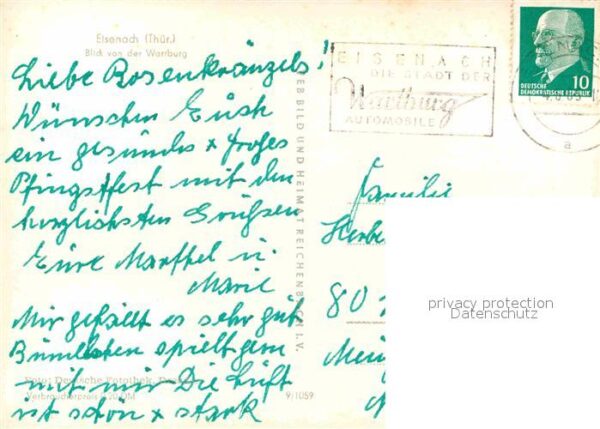 Eisenach (Thür.)
Blick von der Wartburg
Liebe Rosenkränzels!
Wünschen Euch
ein gesundes + frohes
Pfingstfest mit den
herzlichsten Grüßen
Eure Marthel u.
Marie
Mir gefällt es sehr gut
spielt gern
mit mir Die Luft
ist schön + stark
Foto: Deutsche Fotothek,
Verbraucherpreis 0,20 DM
9/1059
VEB BILD UND HEIMAT REICHENBACH I. V.
EISENACH
DIE STADT DER
Wartburg
AUTOMOBILE
10
DEUTSCHE
DEMOKRATISCHE REPUBLIK
a
Familie
80
privacy protection
Datenschutz